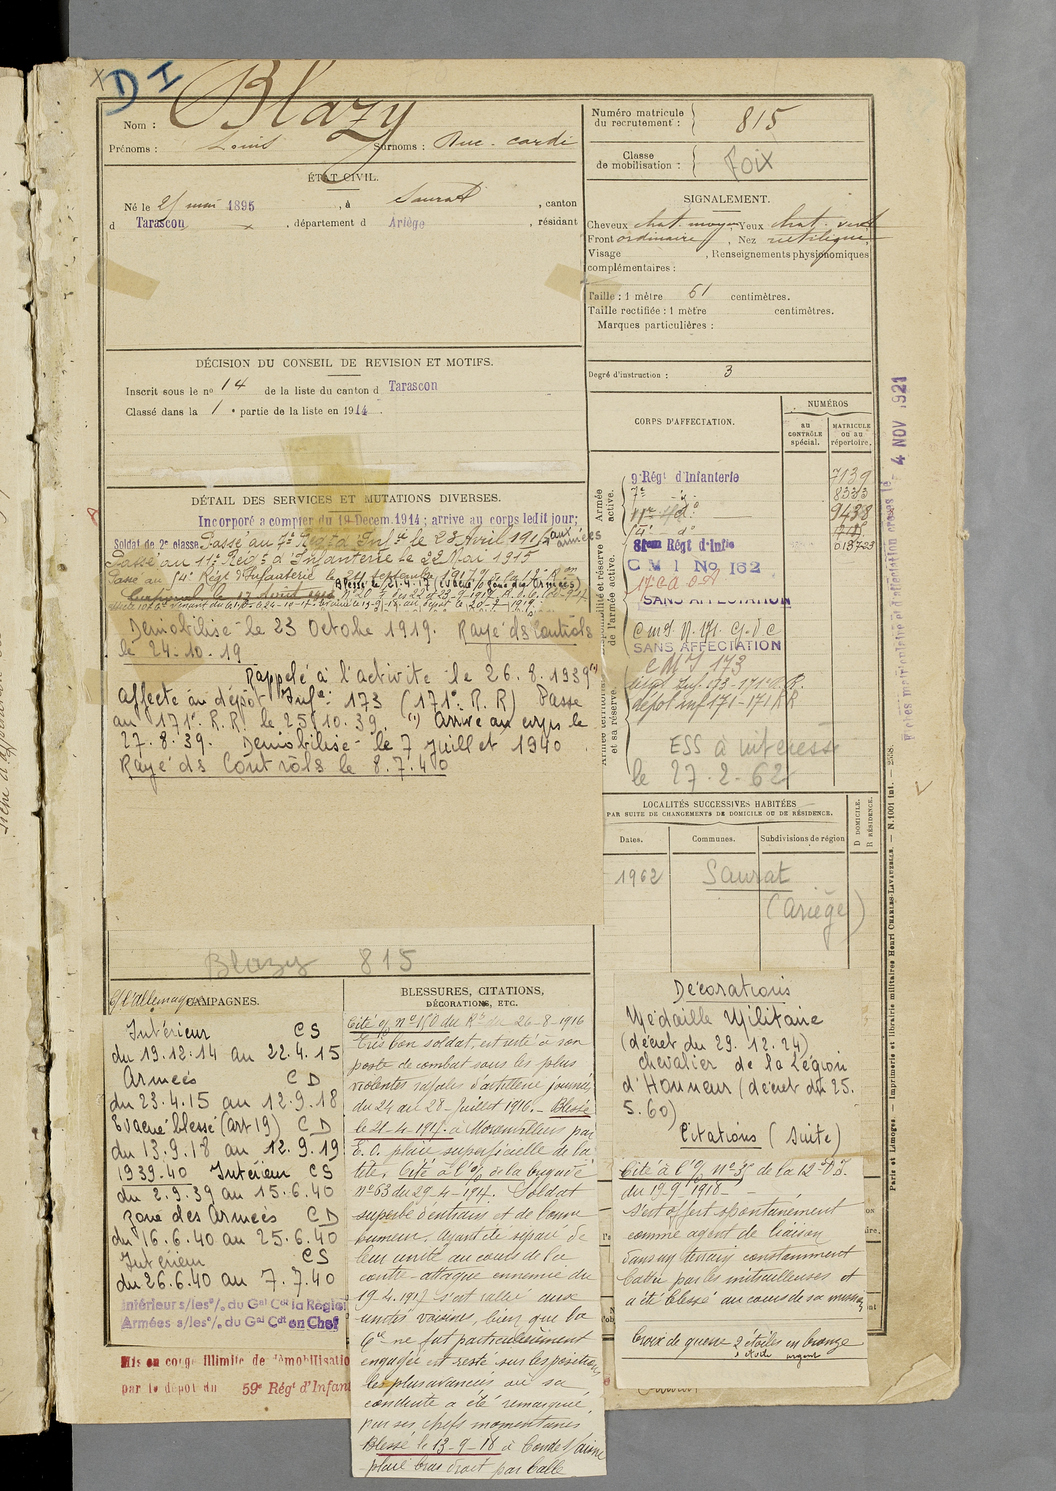 D I
Nom : Blazy
Prénoms : Louis Surnoms : Duc - cardi
Numéro matricule
du recrutement : 815
Classe
de mobilisation : Foix
ÉTAT CIVIL.
Né le 21 mai 1895, à Saurat, canton
d Tarascon, département d Ariège, résidant
SIGNALEMENT.
Cheveux chat. moyen, Yeux chat. vert
Front ordinaire, Nez rectiligne
Visage , Renseignements physionomiques
complémentaires :
Taille : 1 mètre 61 centimètres.
Taille rectifiée : 1 mètre centimètres.
Marques particulières :
Degré d'instruction : 3
DÉCISION DU CONSEIL DE REVISION ET MOTIFS.
Inscrit sous le nº 14 de la liste du canton d Tarascon
Classé dans la 1e partie de la liste en 1914
CORPS D'AFFECTATION.
NUMÉROS
au
CONTRÔLE
spécial.
MATRICULE
ou au
répertoire.
Armée
active.
9e Régt d'Infanterie 7139
7e - d° - 8333
11e - d° 9438
14e d°
81eme Régt d'Infie
C M I No 162
SANS AFFECTATION
C m I. N. 171. Cj. d C
SANS AFFECTATION
C M I 173
dépot inf 171 - 171 RR
ESS à intéressé
le 27.2.62
4 NOV 1921
DÉTAIL DES SERVICES ET MUTATIONS DIVERSES.
Incorporé à compter du 19 Decem. 1914 ; arrive au corps ledit jour;
Soldat de 2e classe. Passé au 7e Régt d'Infie le 23 Avril 1915 aux armées
Passé au 11e Régt d'Infanterie le 22 Mai 1915
Passé au 14e Régt d'Infanterie le 24 septembre 1917
Blessé le 21.4.17 (Evacué zone des Armées)
Démobilisé le 23 Octobre 1919. Rayé ds Contrôls
le 24-10-19
Rappelé à l'activité le 26.8.1939 (1)
affecté au dépôt Infie 173 (171e R.R) Passé
au 171e R.R. le 25.10.39. (1) Arrivé au corps le
27.8.39. Démobilisé le 7 Juillet 1940
Rayé ds Contrôls le 8.7.40
LOCALITÉS SUCCESSIVES HABITÉES
PAR SUITE DE CHANGEMENTS DE DOMICILE OU DE RÉSIDENCE.
D DOMICILE.
R RÉSIDENCE.
Dates. Communes. Subdivisions de région
1962 Saurat
(Ariège)
Paris et Limoges. — Imprimerie et librairie militaires Henri CHARLES-LAVAUZELLE. — N. 1001 int. — 2538.
Blazy 815
C/ l'Allemagne CAMPAGNES.
Intérieur CS
du 19.12.14 au 22.4.15
Armées CD
du 23.4.15 au 12.9.18
Evacué blessé (art 19) CD
du 13.9.18 au 12.9.19
1939.40 Intérieur CS
du 2.9.39 au 15.6.40
zone des Armées CD
du 16.6.40 au 25.6.40
Intérieur CS
du 26.6.40 au 7.7.40
Intérieur s/les °/° du Gal Cdt la Région
Armées s/les °/° du Gal Cdt en Chef
Mis en congé illimité de démobilisatio
par le dépôt du 59e Régt d'Infant
BLESSURES, CITATIONS,
DÉCORATIONS, ETC.
Cité o/ nº 150 du Rt du 26-8-1916
Très bon soldat, est resté à son
poste de combat sous les plus
violentes rafales d'artillerie journées
du 24 au 28 Juillet 1916. - Blessé
le 21-4-1917 à Moronvilliers par
E.O. plaie superficielle de la
tête. Cité à l'o/ de la brigade
nº 63 du 29-4-1917. Soldat
superbe d'entrain et de bonne
humeur. Ayant été séparé de
leur unité au cours de la
contre-attaque ennemie du
19-4-1917 s'est rallié aux
unités voisines, bien que la
Cie ne fut particulièrement
engagée est resté sur les positions
les plus avancées où sa
conduite a été remarquée
par ses chefs momentanés
Blessé le 13-9-18 à Condé s/ Aisne
plaie bras droit par balle
Décorations
Médaille Militaire
(décret du 29.12.24)
Chevalier de la Légion
d'Honneur (décret du 25.
5.60)
Citations (suite)
Cité à l'o/ nº 35 de la 12e D.I.
du 19-9-1918 -
S'est offert spontanément
comme agent de liaison
dans un terrain constamment
battu par les mitrailleuses et
a été blessé au cours de sa mission
Croix de guerre 2 étoiles en bronze
1 étoile argent